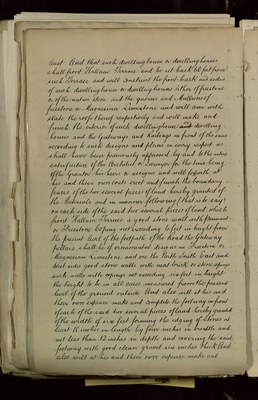 least And that such dwellinghouse or dwellinghouses
shall front Hallam Terrace and be set back feet from
such Terrace and will construct the front back and sides
of such dwellinghouse or dwellinghouses either of firestone
or of the native stone and the quoins and Mullions of
firestone or Magnesian Limestone and will cover with
slate the roofs thereof respectively and will make and
finish the interior of such dwellinghouse and dwelling
houses and the Gateways and Railings in front of the same
according to such designs and plans in every respect as
shall have been previously approved by and to the entire
satisfaction of the Architect or Surveyor for the time being
of the Grantor his heirs or assigns and will forthwith at
his and their own costs erect and finish the boundary
fences of the two several pieces of land hereby granted of
the materials and in manner following (that is to say)
on each side of the said two several pieces of land which
front Hallam Terrace a good stone wall with
or Firestone Coping not exceeding feet in height from
the present level of the footpath of the road the Gateway
pillars shall be of ornamental design in Firestone or
Magnesian Limestone and on the North South East and
West sides good stone walls with neat brick or stone
such walls with copings not exceeding six feet in height
the height to be in all cases measured from the present
level of the ground outside And also will at his and
their own expense make and complete the footway in front
of each of the said two several pieces of land hereby granted
of the width of six feet forming the edging of stones at
least 18 inches in length by four inches in breadth and
not less than 12 inches in depth and covering the said
footway with good clean gravel six inches thick And
also will at his and their own expense make and